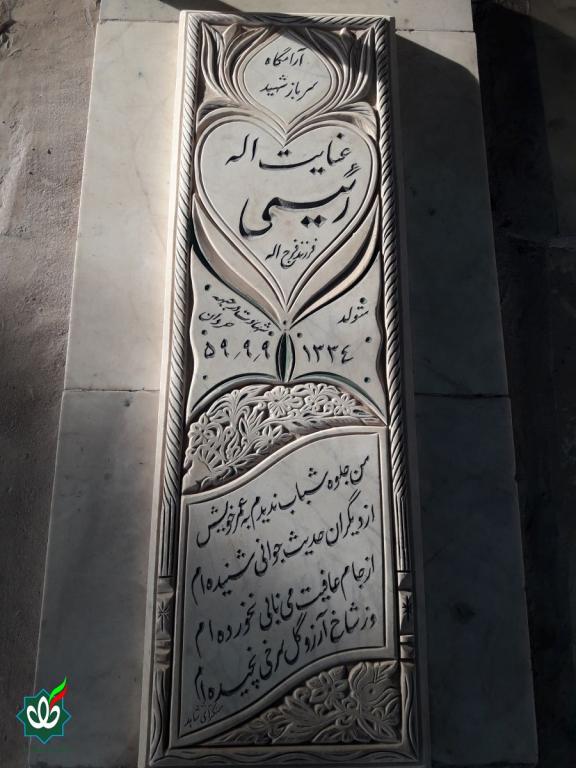 آرامگاه
سرباز شهید
عنایت اله
رئیسی
فرزند فرج اله
متولد
۱۳۳۴
شهادت در جبهه
مروان
۵۹٫۹٫۹
من جلوه شباب ندیدم به عمر خویش
از دیگران حدیث جوانی شنیده ام
از جام عافیت می نابی نخورده ام
وز شاخ آرزو گل عمری نچیده ام